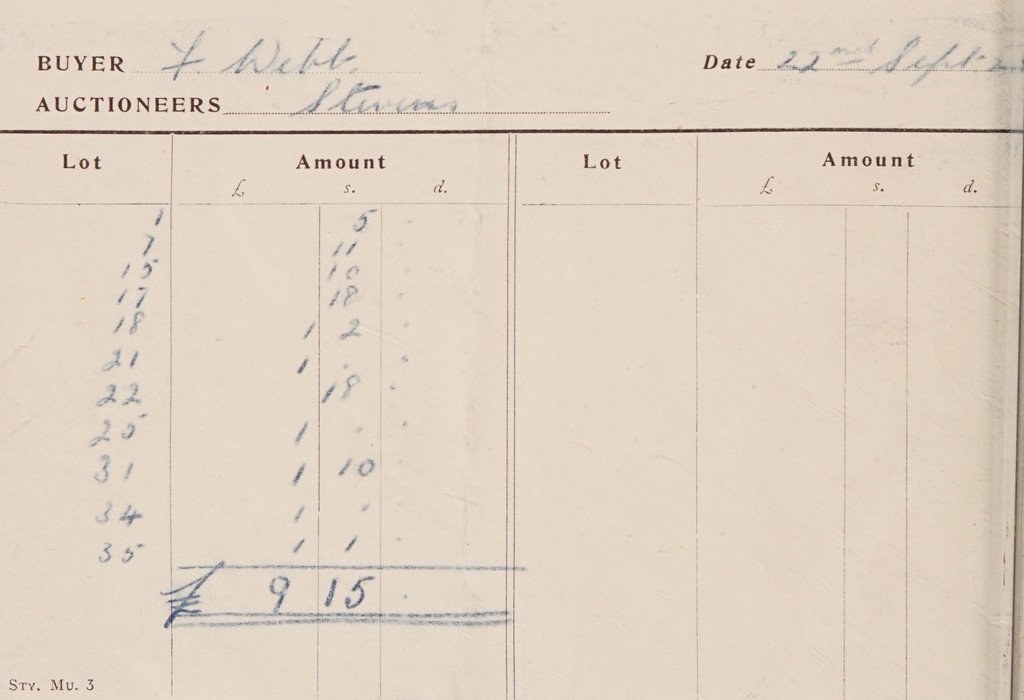 BUYER F. Webb. Date 22nd Sept.
AUCTIONEERS Stevens
Lot Amount Lot Amount
£ s. d. £ s. d.
1 5 .
7 11
15 10
17 18 .
18 1 2 .
21 1 . .
22 18 .
25 1 . .
31 1 10 .
34 1 .
35 1 1 .
£ 9 15 .
STY. MU. 3